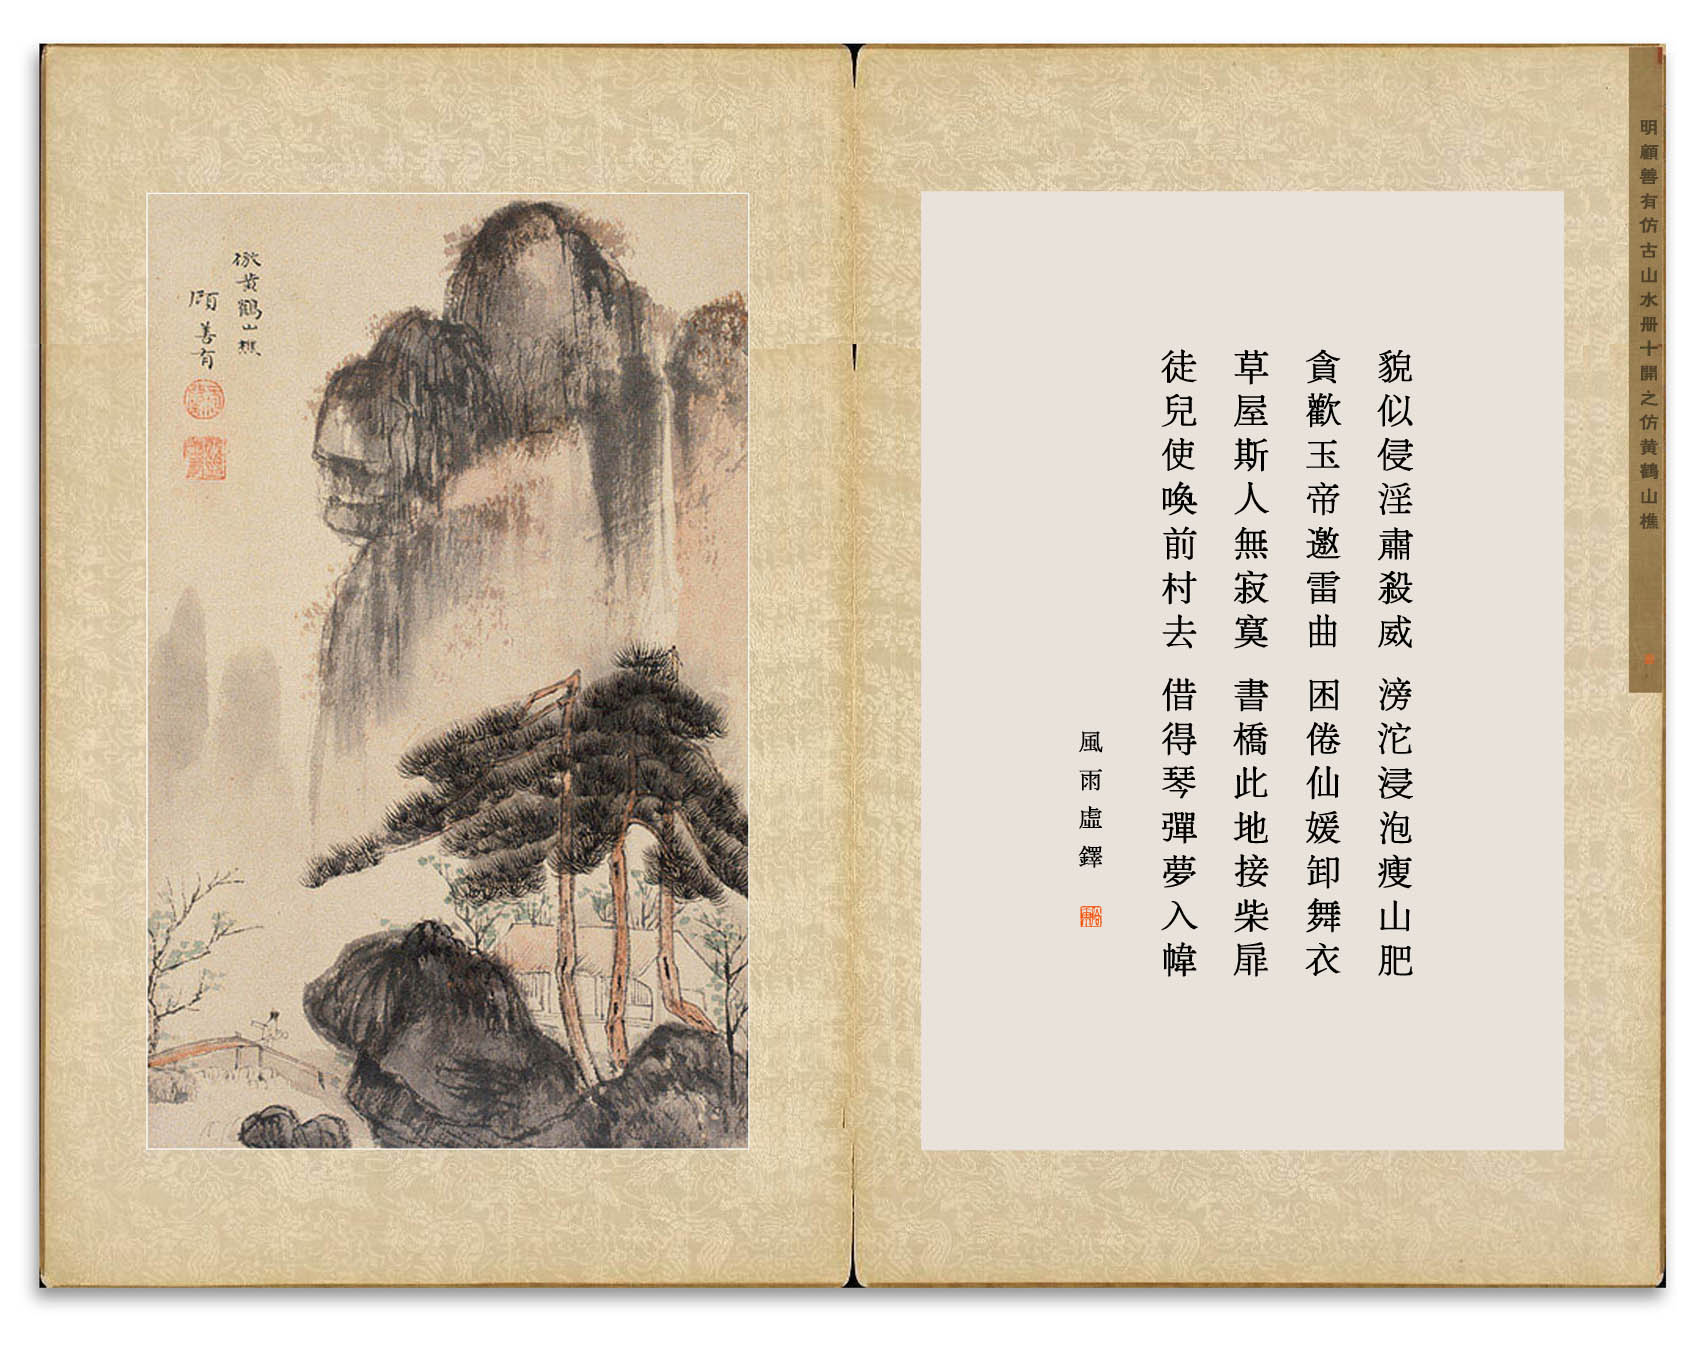 明顧善有仿古山水册十開之仿黄鶴山樵
貌似侵淫肅殺威 滂沱浸泡瘦山肥
貪歡玉帝邀雷曲 困倦仙媛卸舞衣
草屋斯人無寂寞 書橋此地接柴扉
徒兒使喚前村去 借得琴彈夢入幃
風雨虛鐸
倣黄鶴山樵
顾善有